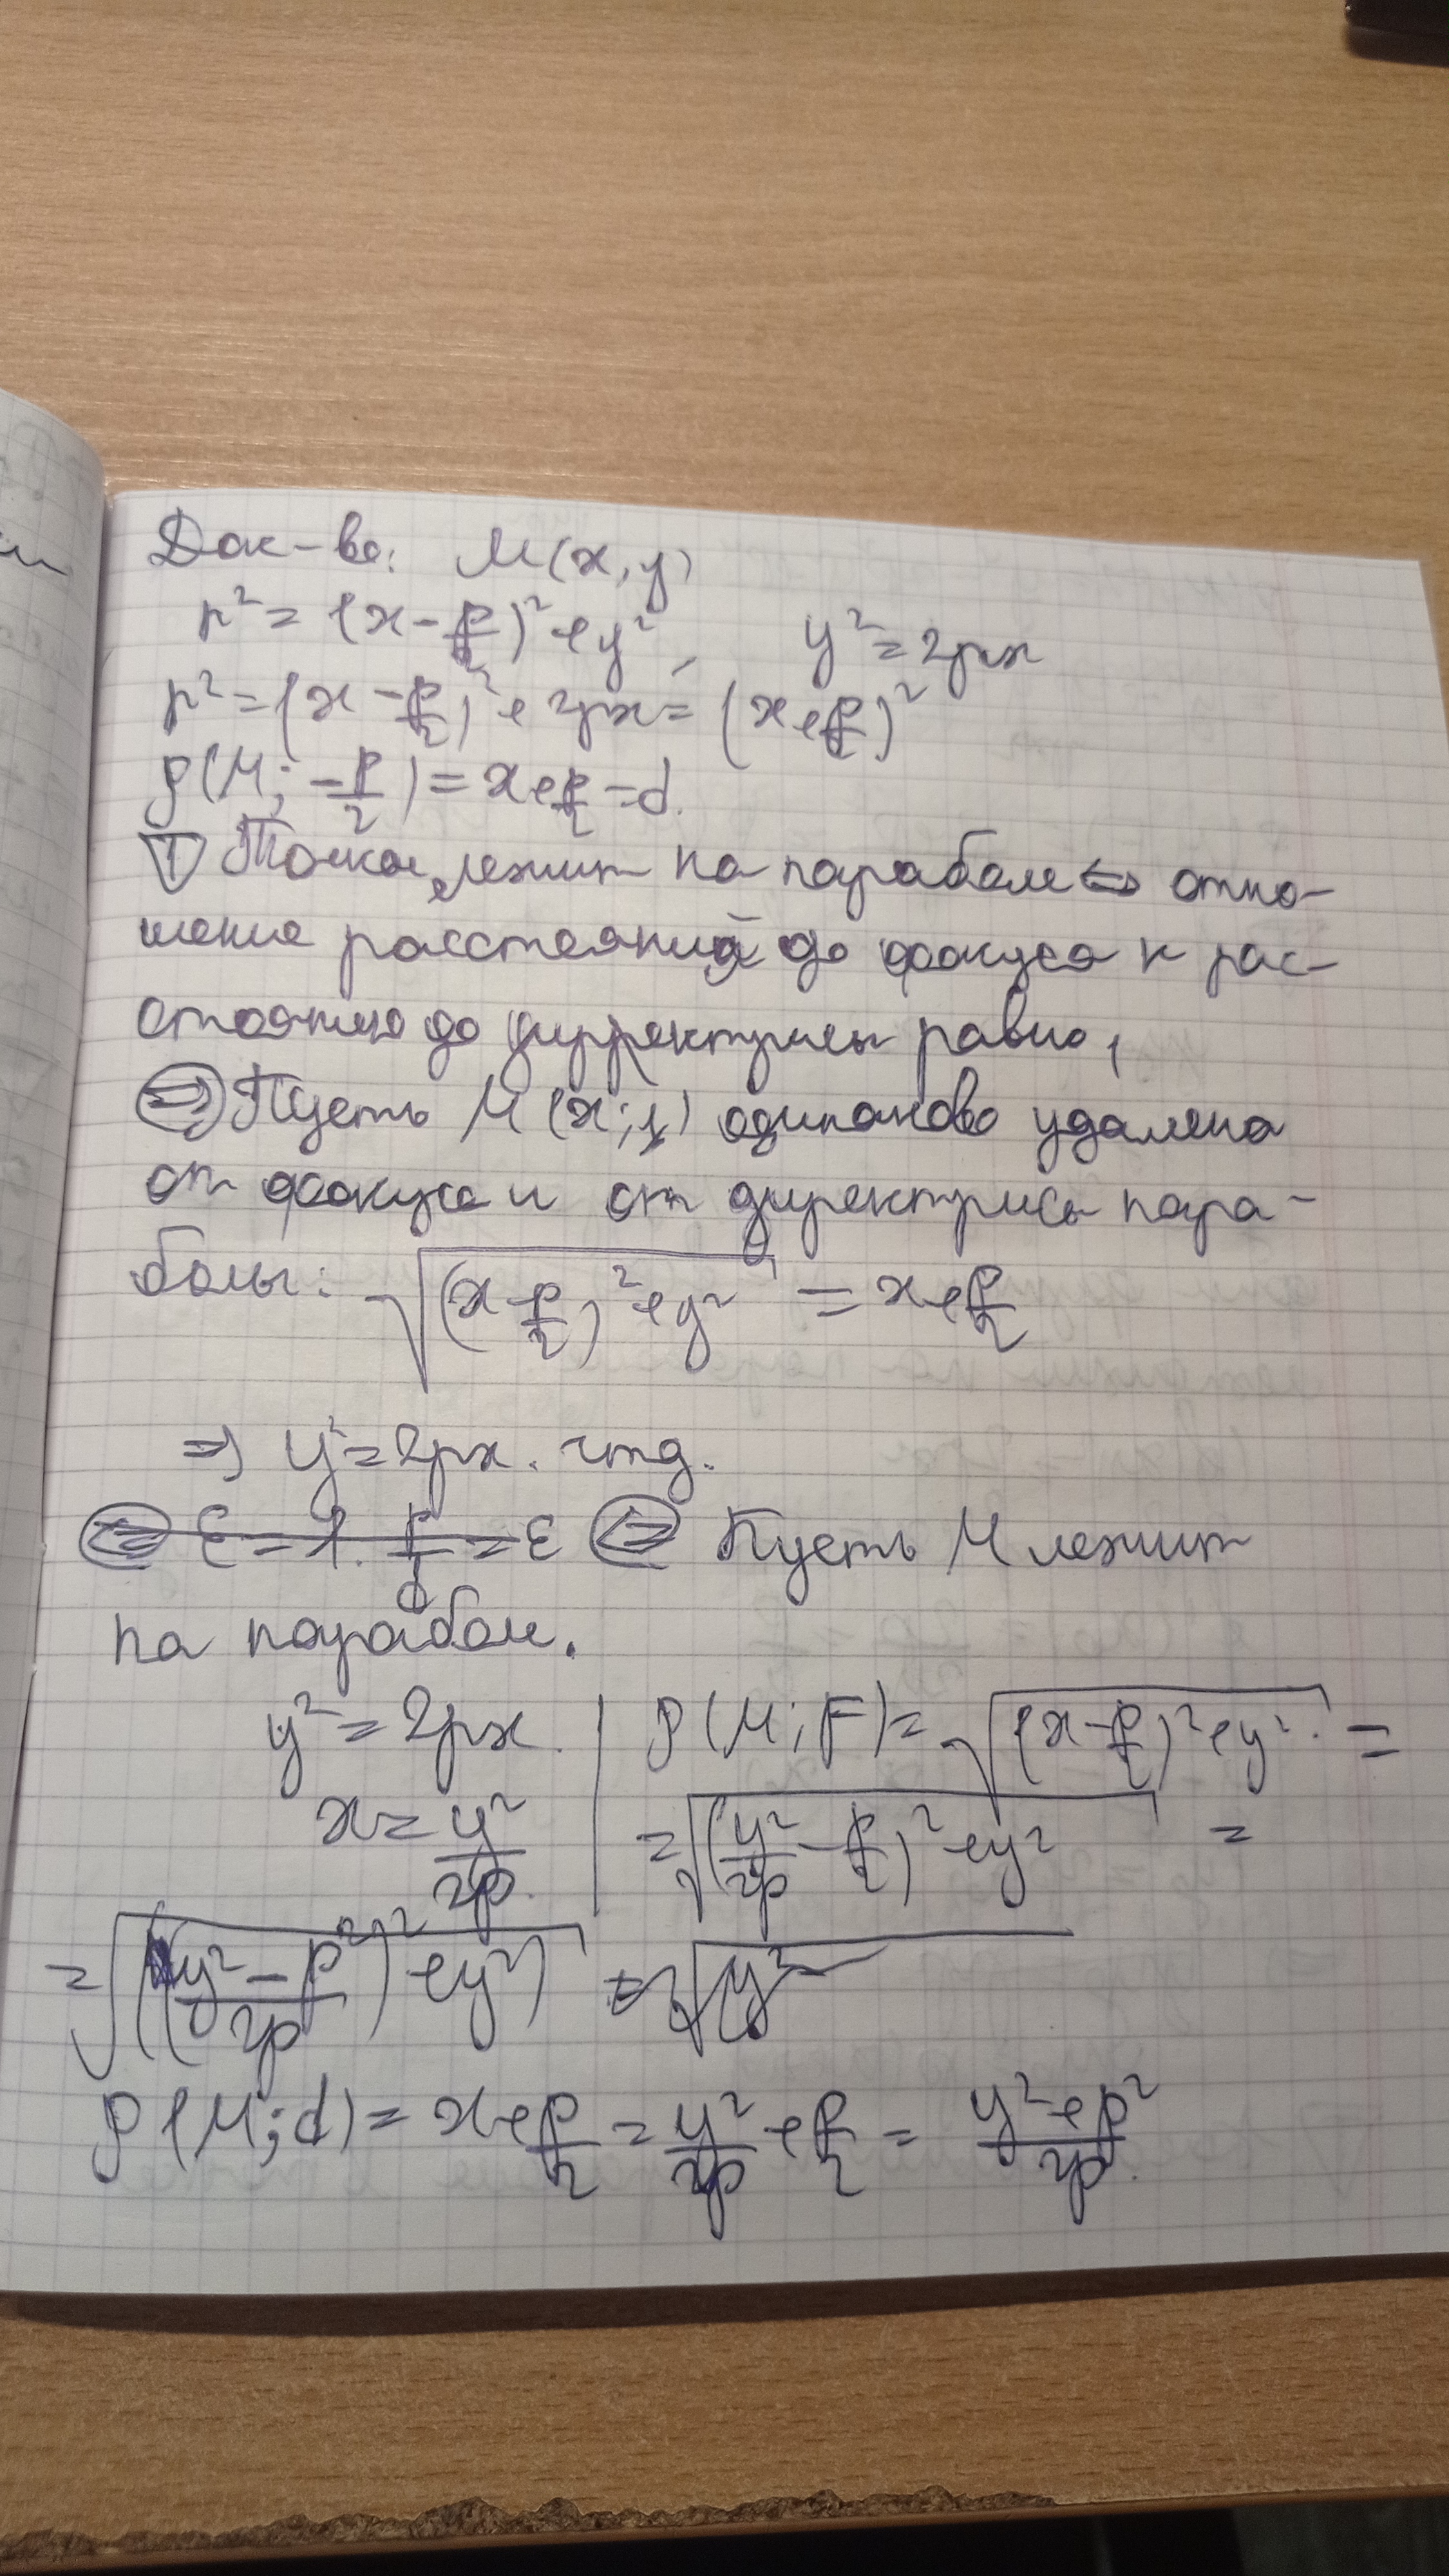 Док-во: M(x, y)
r² = (x - p/2)² + y², y² = 2px
r² = (x - p/2)² + 2px = (x + p/2)²
ρ(M; -p/2) = x + p/2 = d.
Точка лежит на параболе ⇔ отно-
шение расстояний до фокуса к рас-
стоянию до дирректрисы равно 1
⇒ Пусть M(x; y) одинаково удалена
от фокуса и от директрисы пара-
болы: √((x - p/2)² + y²) = x + p/2
⇒ y² = 2px. чтд.
⇐ ε = 1. r/d = ε ⇐ Пусть M лежит
на параболе.
y² = 2px. | ρ(M; F) = √((x - p/2)² + y²) =
x = y²/2p. | = √((y²/2p - p/2)² + y²) =
= √(((y² - p²)/2p)² + y²) = √(y²
ρ(M; d) = x + p/2 = y²/2p + p/2 = (y² + p²)/2p.